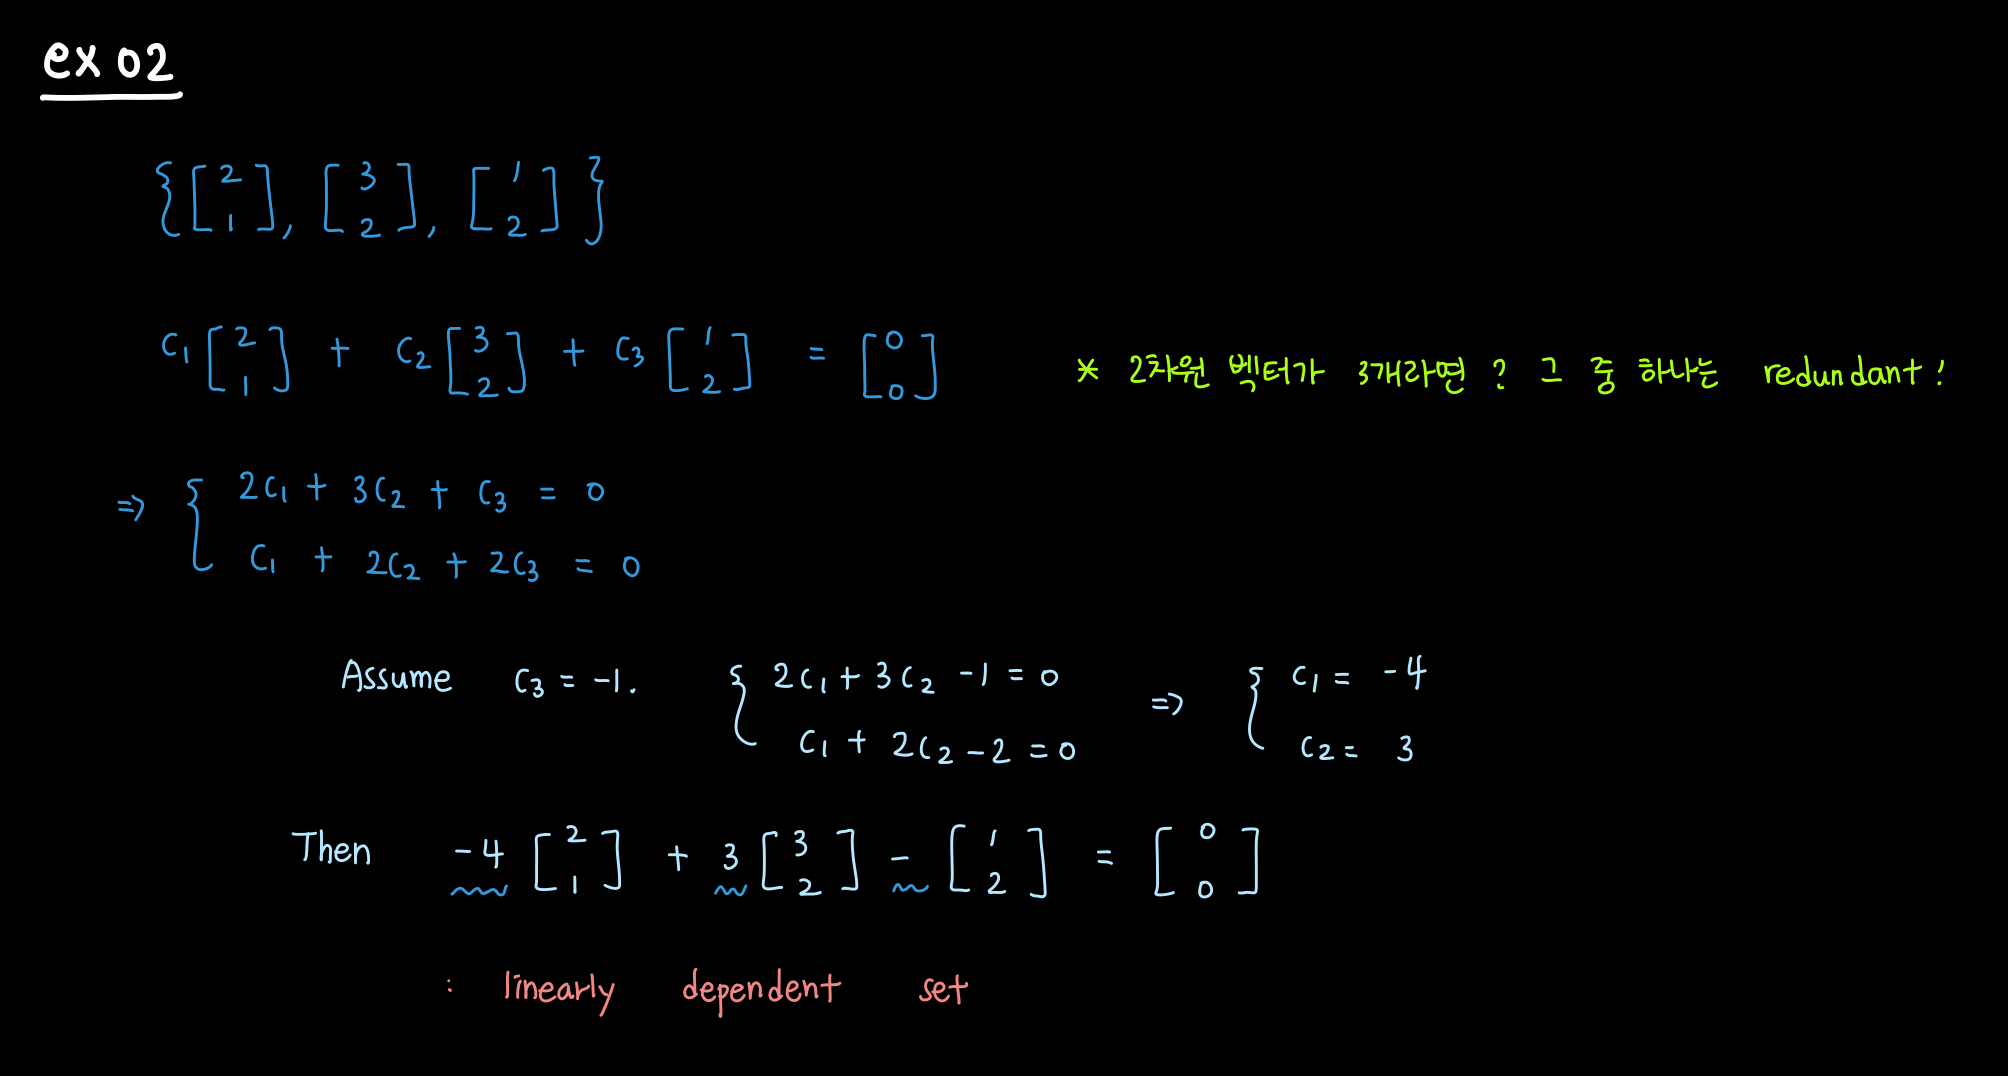 ex 02
{[2 1], [3 2], [1 2]}
c₁[2 1] + c₂[3 2] + c₃[1 2] = [0 0]
* 2차원 벡터가 3개라면? 그 중 하나는 redundant!
⇒ { 2c₁ + 3c₂ + c₃ = 0
c₁ + 2c₂ + 2c₃ = 0
Assume c₃ = -1. { 2c₁ + 3c₂ - 1 = 0 ⇒ { c₁ = -4
c₁ + 2c₂ - 2 = 0 c₂ = 3
Then -4[2 1] + 3[3 2] - [1 2] = [0 0]
: linearly dependent set